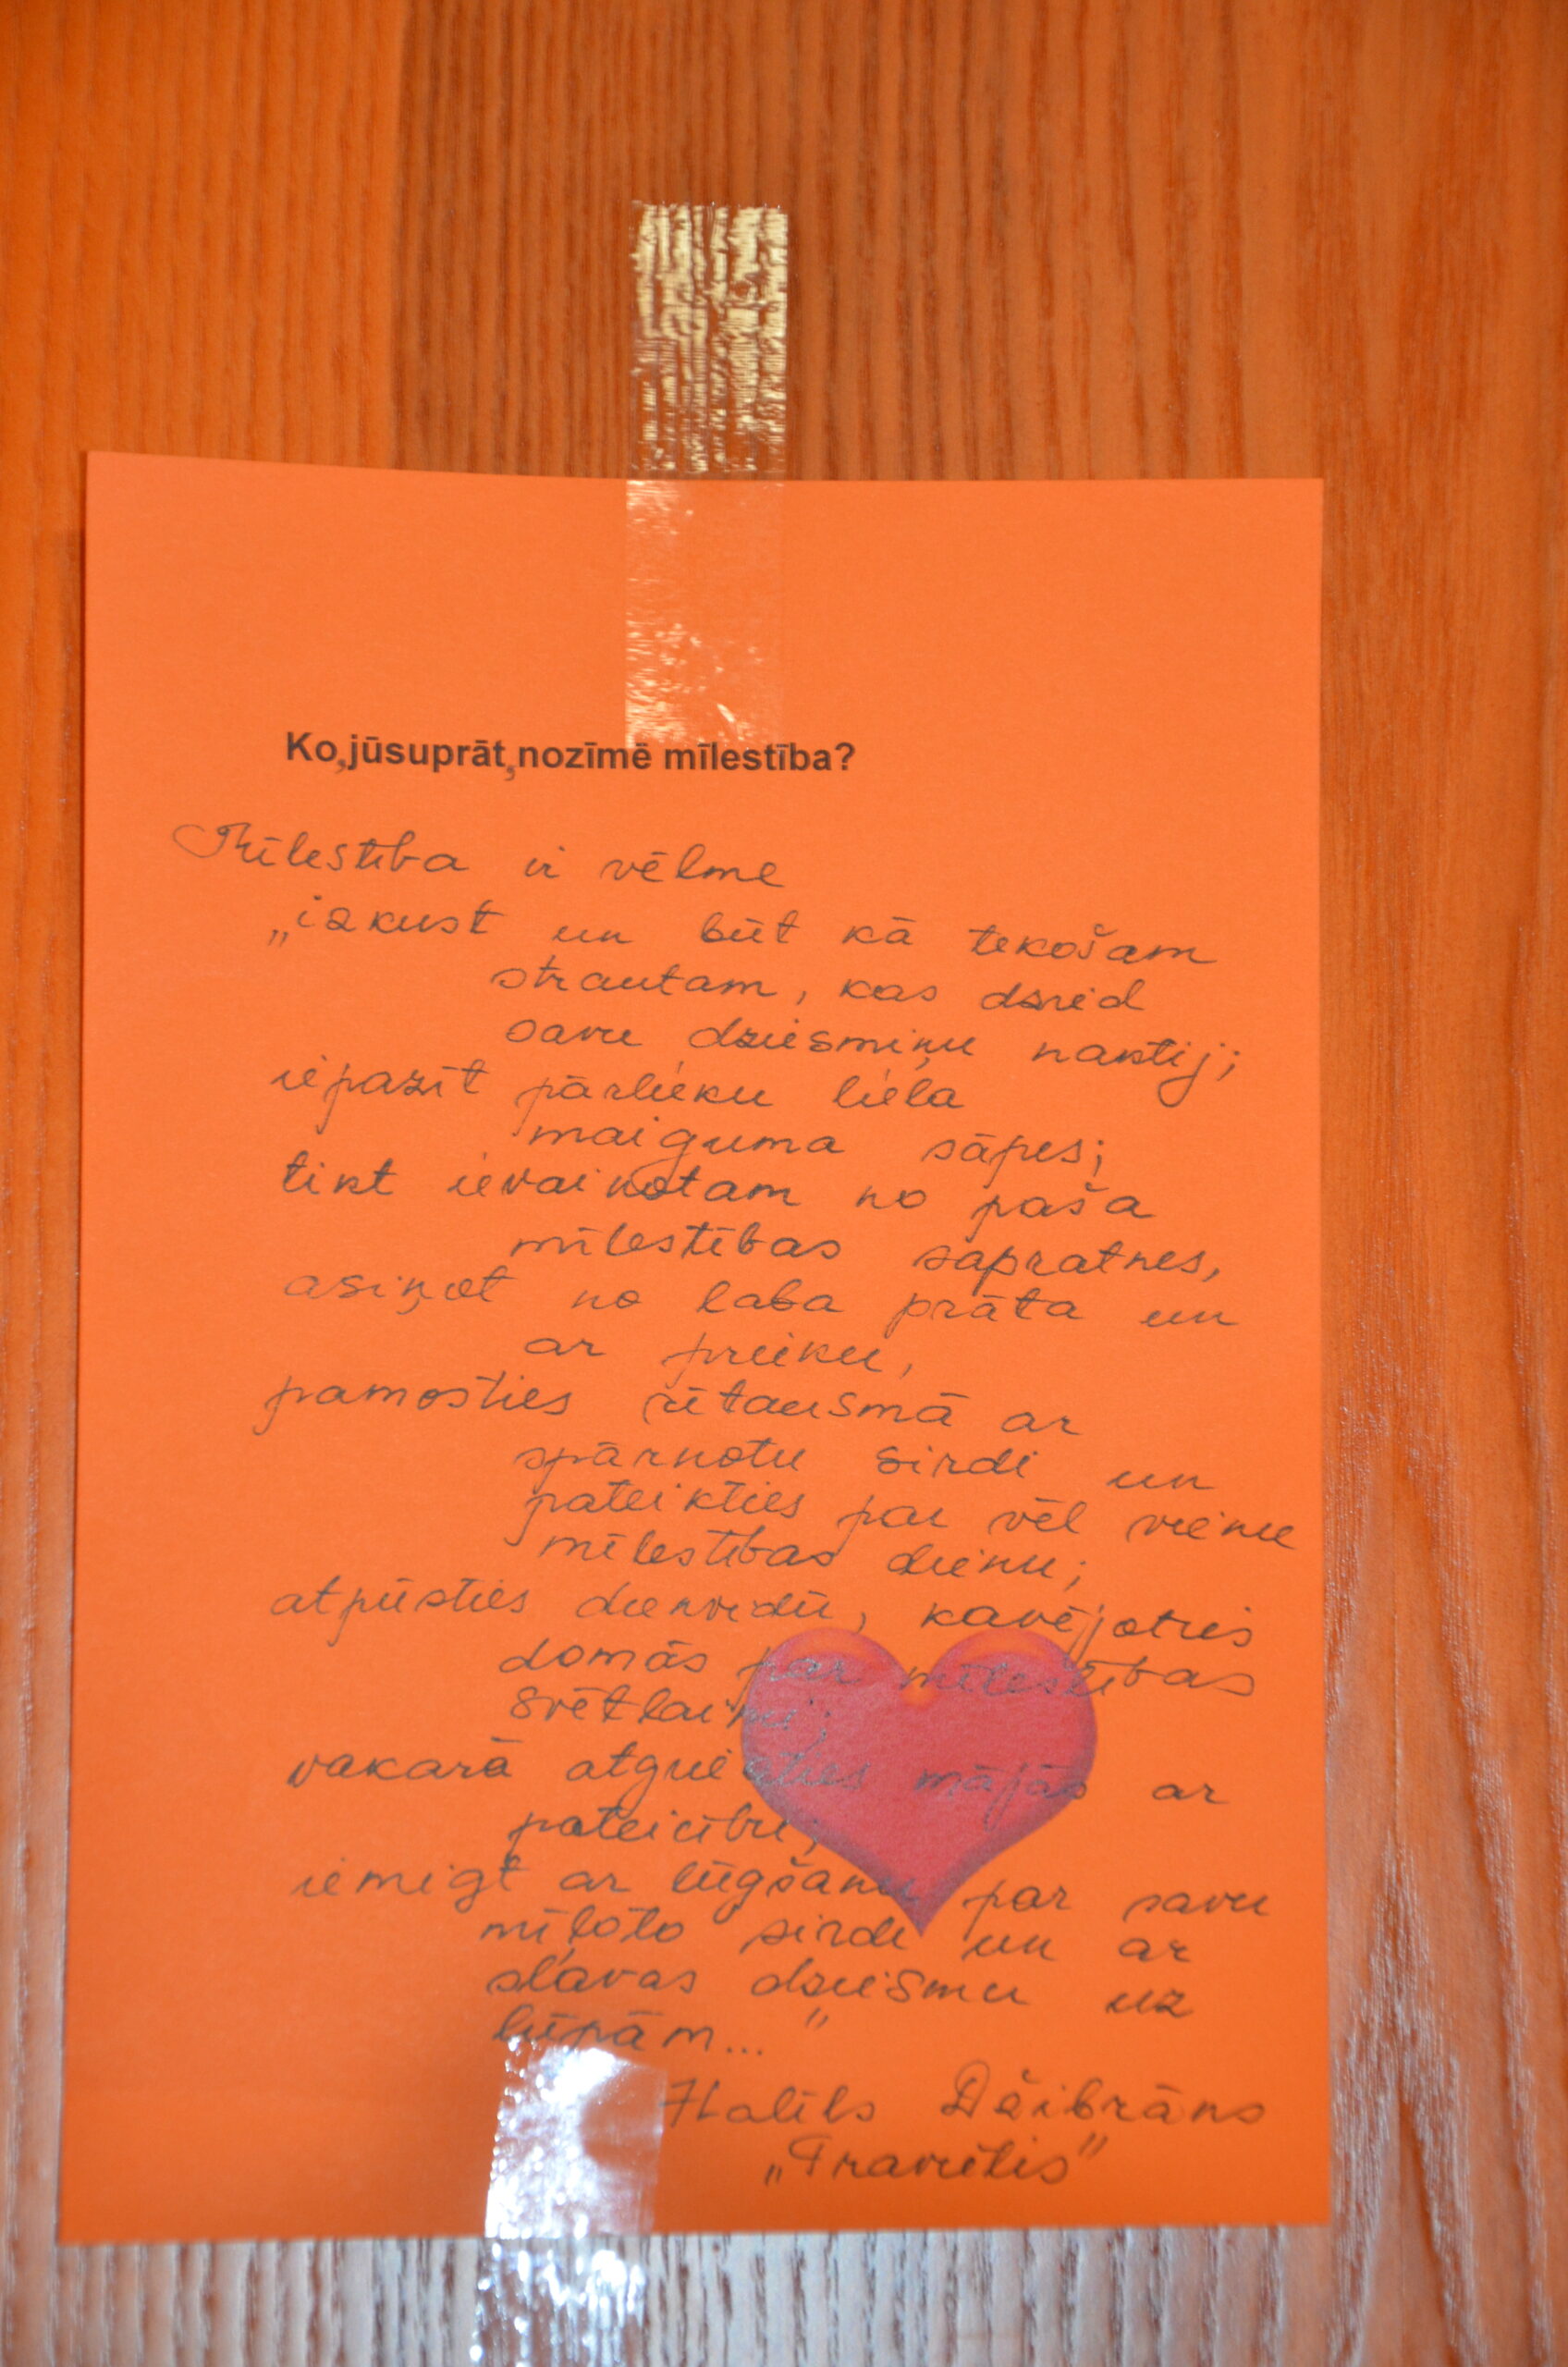 Ko, jūsuprāt, nozīmē mīlestība?
Mīlestība ir vēlme
„izkust un būt kā tekošam
strautam, kas dzied
savu dziesmiņu naktij;
iepazīt pārlieku liela
maiguma sāpes;
tikt ievainotam no paša
mīlestības sapratnes,
asiņot no laba prāta un
ar prieku,
pamosties rītausmā ar
spārnotu sirdi un
pateikties par vēl vienu
mīlestības dienu;
atpūsties dienvidū, kavējoties
domās par mīlestības
svētlaimi;
vakarā atgriezties mājās ar
pateicību;
iemigt ar lūgšanu par savu
mīļoto sirdī un ar
slavas dziesmu uz
lūpām..."
Halīls Džibrāns
„Pravietis"